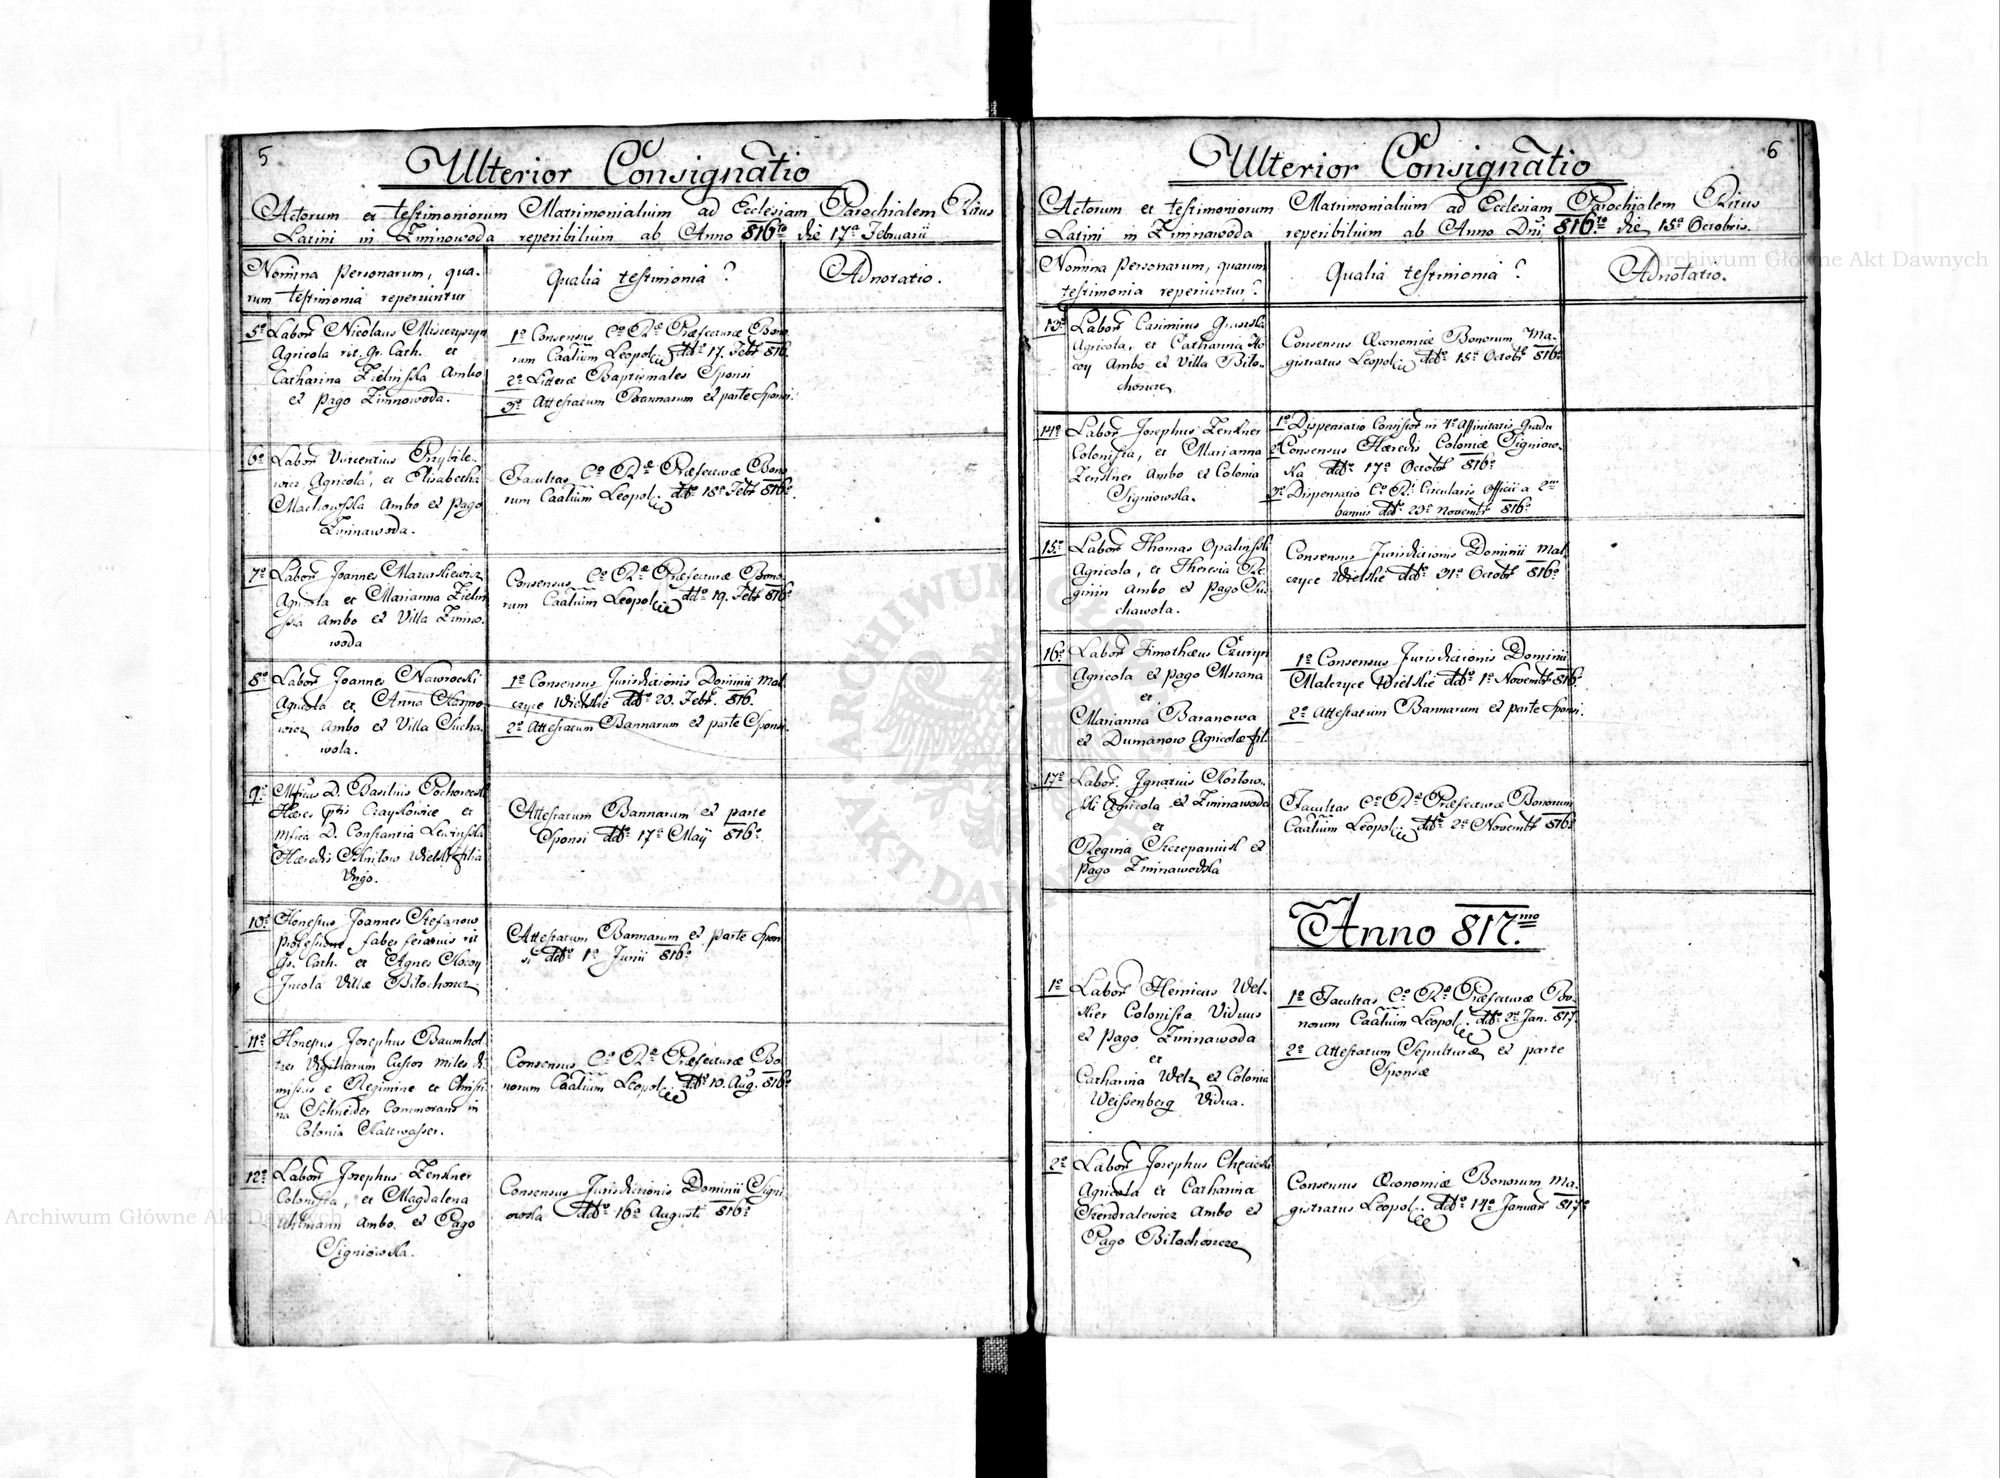 5
Ulterior Consignatio
Actorum et testimoniorum Matrimonialium ad Ecclesiam Parochialem Ritus
Latini in Zimnowoda reperibilium ab Anno 816to die 17a Februarii
Nomina personarum, qua-
rum testimonia reperiuntur
Qualia testimonia?
Adnotatio.
5o Labor Nicolaus
Agricola rit. Gr. Cath. et
Catharina Zielinska Ambo
ex pago Zimnowoda.
1o Consensus Co Ro Præfecturæ Bono-
rum Caalium Leopol: ddto 17. Febr 816.
2o Litteræ Baptismales Sponsi
3o Attestatum Bannarum ex parte Sponsi.
6o Labor Vincentius Przybile-
wicz Agricola, et Elisabetha
Machowska Ambo ex pago
Zimnawoda.
Facultas Co Ro Præfecturæ Bono
rum Caalium Leopol: ddto 18a Febr 816o.
7o Labor Joannes Mazurkiewicz
Agricola et Marianna Zielin
ska Ambo ex Villa Zimno-
woda
Consensus Co Ro Præfecturæ Bono
rum Caalium Leopol: ddto 19. Febr 816o
8o Labor Joannes Nawrocki
Agricola et Anna Karpo
wicz Ambo ex Villa Sucha
wola.
1o Consensus Jurisdictionis Dominii Mal
czyce Wielkie ddto 20. Febr. 816.
2o Attestatum Bannarum ex parte Sponsi.
9o Mficus D. Basilius
Hæres et
Mfica D. Constantia Lewinska
Hæredis Wielk filia
Virgo.
Attestatum Bannarum ex parte
Sponsi ddto 17a Maij 816o.
10o Honestus Joannes Stefanow
professione faber ferarius rit
Gr. Cath. et Agnes Kocoy
Incola Villæ Bilochorcz
Attestatum Bannarum ex parte Spon
si ddto 1a Junii 816o
11o Honestus Josephus Baumhol-
tzer Vigiliarum Custos miles di
missus e Regimine et Christi
na Schneider Commorans in
Colonia Kaltwasser.
Consensus Co Ro Præfecturæ Bo
norum Caalium Leopol: ddto 10. Aug. 816o
12o Labor Josephus Zenkner
Colonista, et Magdalena
Uhlmann Ambo ex Pago
Signiowka.
Consensus Jurisdictionis Dominii Signi
owka ddto 16a Augusti 816o
6
Ulterior Consignatio
Actorum et testimoniorum Matrimonialium ad Ecclesiam Parochialem Ritus
Latini in Zimnawoda reperibilium ab Anno Dni 816to die 15a Octobris.
Nomina personarum, quarum
testimonia reperiuntur?
Qualia testimonia?
Adnotatio.
13o Labor Casimirus
Agricola, et Catharina Ko
coy Ambo ex Villa Bilo-
chorcze
Consensus Œconomiæ Bonorum Ma-
gistratus Leopol: ddto 15a Octobr 816o
14o Labor Josephus Zenkner
Colonista, et Marianna
Zenkner Ambo ex Colonia
Signiowka.
1o Dispensatio Consistor in 4o Affinitatis Gradu
2o Consensus Hæredis Coloniæ Signiow-
ka ddto 17a Octobr 816o
3o Dispensatio Co Ro Circularis Officii a 2bus
bannis ddto 23a Novembr 816o
15o Labor Thomas Opalinski
Agricola, et Theresia
Ambo ex Pago Su-
chawola.
Consensus Jurisdictionis Dominii Mal
czyce Wielkie ddto 31a Octobr 816o
16o Labor Timothæus
Agricola ex pago Mszana
et
Marianna Baranowa
ex Dumanow Agricolæ fil.
1o Consensus Jurisdictionis Dominii
Malczyce Wielkie ddto 1a Novembr 816o.
2o Attestatum Bannarum ex parte Sponsi.
17o Labor Ignatius Kozlow-
ski Agricola ex Zimnawoda
et
Regina Szczepaniuk ex
Pago Zimnawodka
Facultas Co Ro Præfecturæ Bonorum
Caalium Leopol: ddto 2a Novembr 816o
Anno 817.mo
1o Labor Henricus Wel-
ker Colonista Viduus
ex pago Zimnawoda
et
Catharina Welz ex Colonia
Weissenberg Vidua.
1o Facultas Co Ro Præfecturæ Bo-
norum Caalium Leopol: ddto 2a Jan. 817.
2o Attestatum Sepulturæ ex parte
Sponsæ
2o Labor Josephus
Agricola et Catharina
Ambo ex
Pago Bilochorcze
Consensus Œconomiæ Bonorum Ma-
gistratus Leopol: ddto 14a Januar 817o
Archiwum Główne Akt Dawnych
Archiwum Główne Akt Dawnych
ARCHIWUM GŁÓWNE AKT DAWNYCH